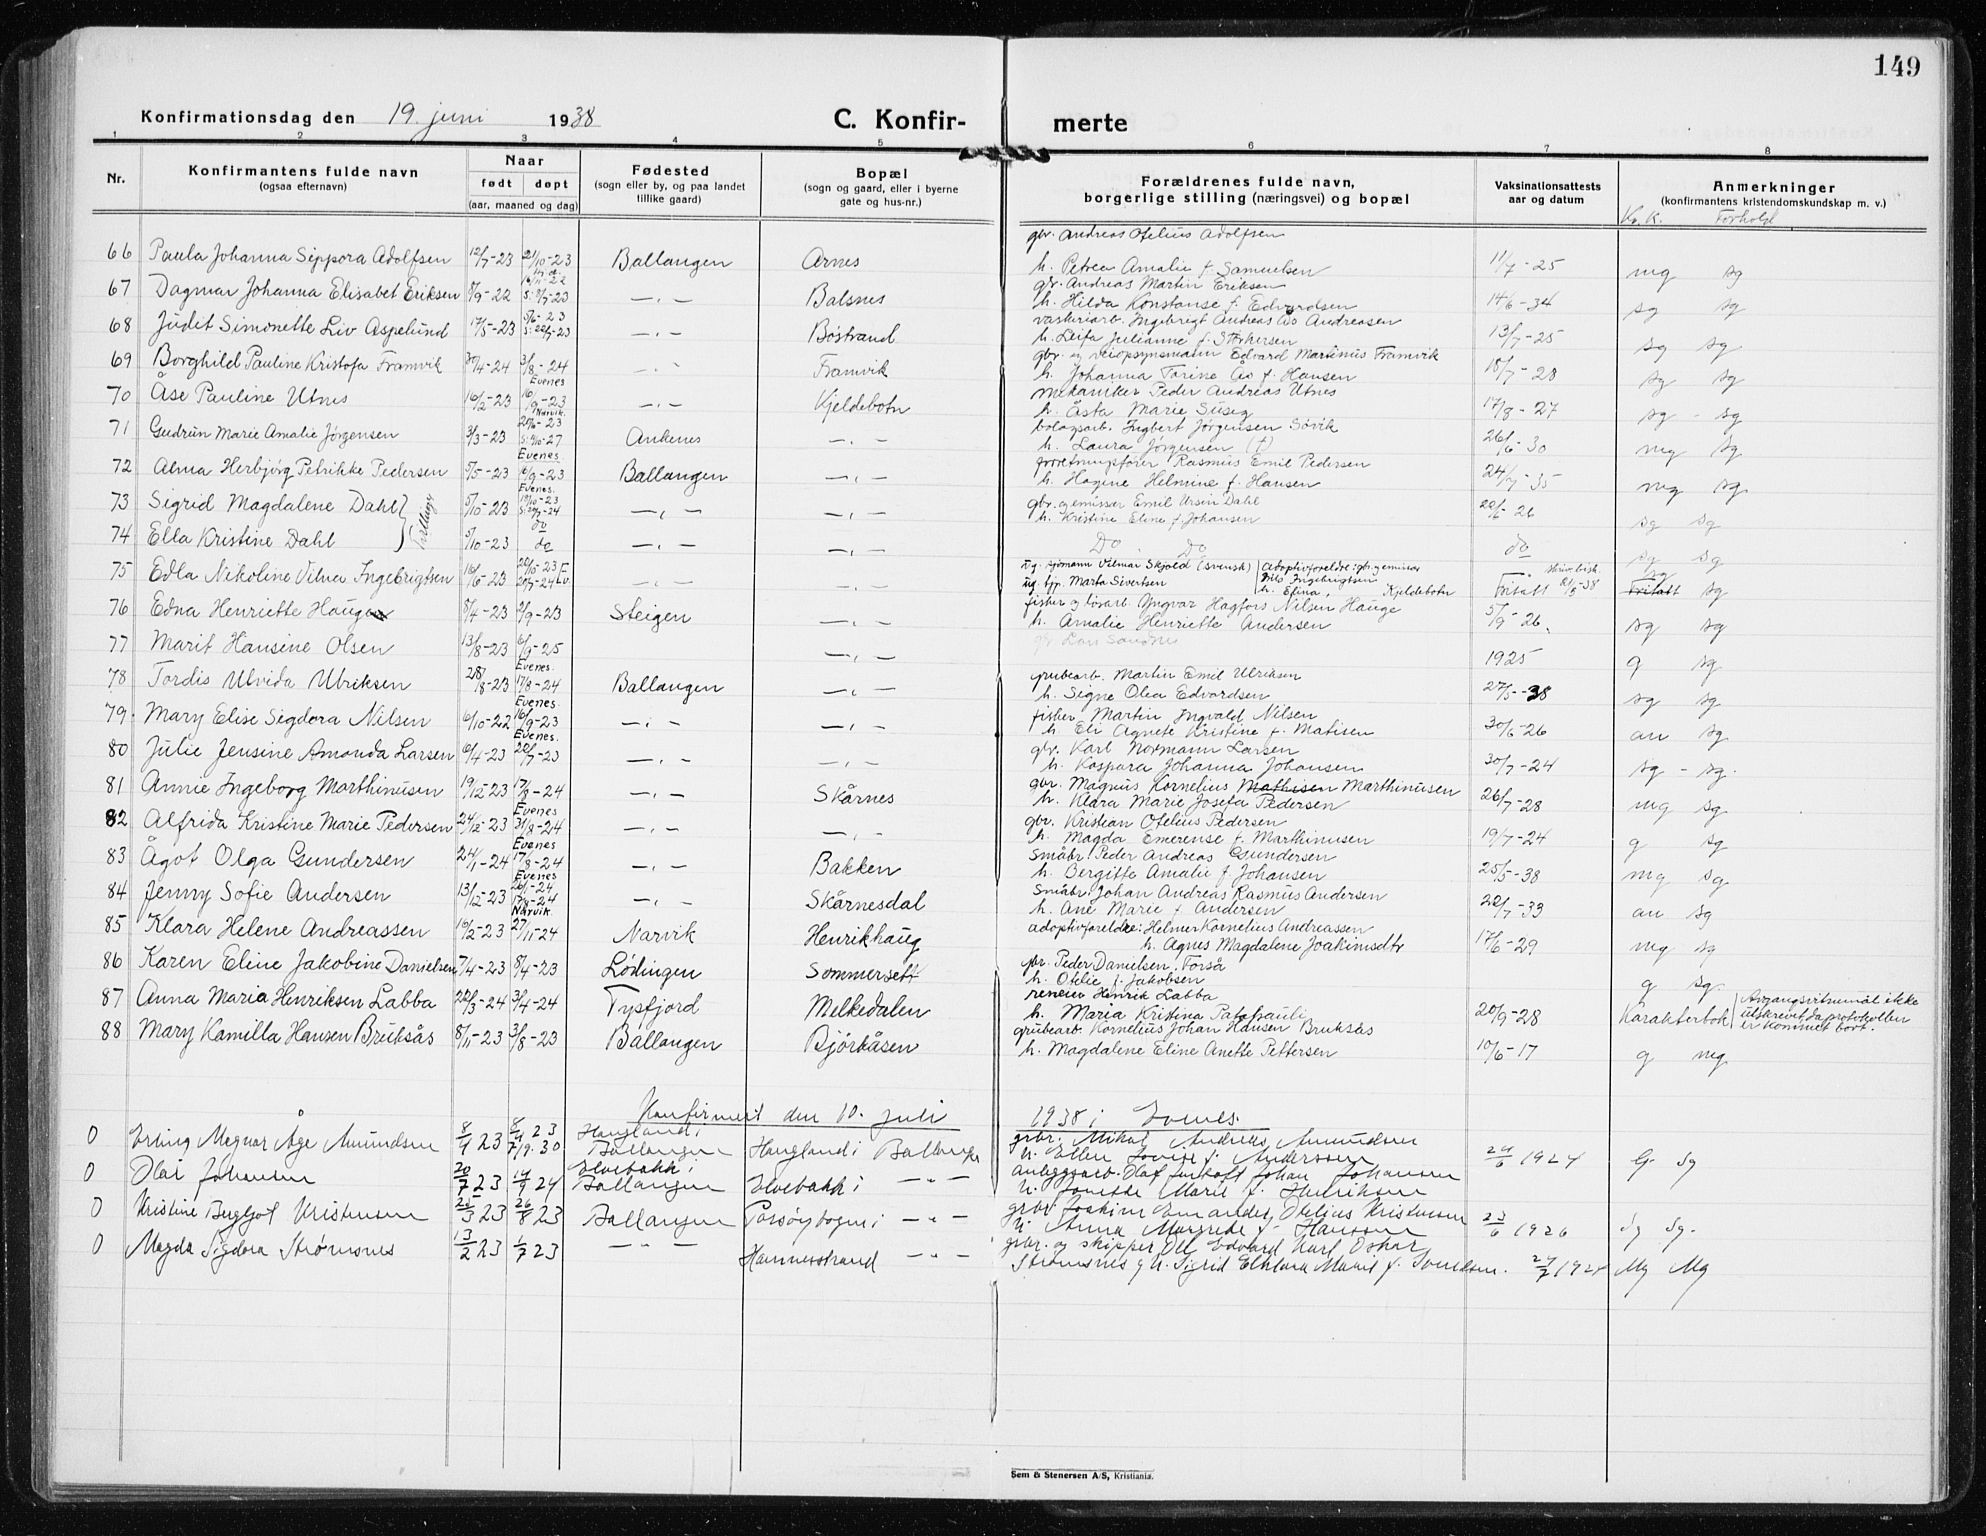 149
Konfirmationsdag den 19. juni 1938 C. Konfir- merte
1 2 3 4 5 6 7 8
Nr. Konfirmantens fulde navn (ogsaa efternavn) Naar født døpt (aar, maaned og dag) Fødested (sogn eller by, og paa landet tillike gaard) Bopæl (sogn og gaard, eller i byerne gate og hus-nr.) Forældrenes fulde navn, borgerlige stilling (næringsvei) og bopæl Vaksinationsattests aar og datum Anmerkninger (konfirmantens kristendomskundskap m. v.)
Kr. K. Forhold
gbr. Andreas Ofelius Adolfsen
66 Paula Johanna Sippora Adolfsen 12/7-23 21/10-23 Ballangen Arnes h. Petrea Amalie f. Samuelsen 11/7-25 mg sg
gbr. Andreas Martin Eriksen
67 Dagmar Johanna Elisabet Eriksen 8/9-22 -"- Balsnes h. Hilda Konstanse f. Edvardsen 14/6-34 sg sg
Ingebrigt Andreas Ås Andreasen
68 Judit Simonette Liv Aspelund 17/5-23 -"- Bøstrand h. Leifa Julianne f. Størkersen 13/7-25 sg sg
gbr. og veiopsynsmann Edvard Martinus Framvik
69 Borghild Pauline Kristofa Framvik 30/4-24 3/8-24 -"- Framvik h. Johanna Torine Ås f. Hansen 18/7-28 sg sg
Evenes mekaniker Peder Andreas Utnes
70 Åse Pauline Utnes 16/2-23 16/9-23 -"- Kjeldebotn h. Åsta Marie Suseg 17/8-27 sg - sg
Narvik bolagsarb. Ingbert Jørgensen Søvik
71 Gudrun Marie Amalie Jørgensen 3/3-23 Ankenes -"- h. Laura Jørgensen (†) 26/6-30 mg sg
Evenes forretningsfører Rasmus Emil Pedersen
72 Alma Herbjørg Petrikke Pedersen 5/5-23 16/9-23 Ballangen -"- h. Hagine Helmine f. Hansen 24/7-35 mg sg
Evenes gbr. og emissær Emil Ursin Dahl
73 Sigrid Magdalene Dahl } tvillinger 5/10-23 -"- -"- h. Kristine Eline f. Johansen 22/6-26 sg sg
74 Ella Kristine Dahl 5/10-23 do -"- -"- Do Do do sg sg
ug. sjømann Vilmar Skjold (svensk) Adoptivforeldre: gb. og emissær
75 Edla Nikoline Vilma Ingebrigtsen 16/6-23 -"- -"- ug. tjp. Marta Sivertsen Nils Ingebrigtsen h. Elina, Kjeldebotn Fritatt Fritatt sg
fisker og løsarb. Yngvar Hagfors Nilsen Hauge
76 Edna Henriette Hauge 8/4-23 2/9-23 Steigen -"- h. Amalie Henriette Andersen 5/9-26 sg sg
77 Marit Hansine Olsen 13/8-23 6/9-25 -"- 1925 g sg
Evenes grubearb. Martin Emil Ulriksen
78 Tordis Ulvida Ulriksen 28/8-23 17/8-24 Ballangen -"- h. Signe Olea Edvardsen 27/5-38 sg sg
Evenes fisker Martin Ingvald Nilsen
79 Mary Elise Sigdora Nilsen 6/10-22 16/9-23 -"- -"- h. Eli Agnete Kristine f. Matisen 30/6-26 an sg
Evenes gbr. Karl Normann Larsen
80 Julie Jensine Amanda Larsen 6/4-23 20/7-23 -"- -"- h. Kaspara Johanna Johansen 30/7-24 sg - sg
gbr. Magnus Kornelius Mathisen Marthinusen
81 Annie Ingeborg Marthinusen 19/12-23 17/8-24 -"- Skårnes h. Klara Marie Josefa Pedersen 26/7-28 mg sg
Evenes gbr. Kristian Ofelius Pedersen
82 Alfrida Kristine Marie Pedersen 24/12-23 31/8-24 -"- -"- h. Magda Emerense f. Marthinusen 19/7-24 g sg
Evenes småbr. Peder Andreas Gundersen
83 Ågot Olga Gundersen 24/1-24 17/8-24 -"- Bakken h. Bergitte Amalie f. Johansen 25/5-38 mg sg
Evenes småbr. Johan Andreas Rasmus Andersen
84 Jenny Sofie Andersen 13/12-23 -"- Skårnesdal h. Ane Marie f. Andersen 22/7-33 an sg
Narvik adoptivforeldre: Helmer Kornelius Andreassen
85 Klara Helene Andreassen 16/2-23 27/11-24 Narvik Henrikhaug h. Agnes Magdalene Joakimsdtr 17/6-29 mg sg
gbr. Peder Danielsen, Forså
86 Karen Eline Jakobine Danielsen 7/4-23 8/4-23 Lødingen Sommersett h. Otelie f. Jakobsen g sg
reneier Henrik Labba
87 Anna Maria Henriksen Labba 22/3-24 3/4-24 Tysfjord Melkedalen h. Maria Kristina Patatrauli 20/9-28 Karakterbok Avgangsvitnemål ikke utskrevet da protokollen er kommet bort.
grubearb. Kornelius Johan Hansen Bruksås
88 Mary Kamilla Hansen Bruksås 8/11-23 3/8-23 Ballangen Bjørkåsen h. Magdalene Eline Anette Pettersen 10/6-17 g mg
Konfirmert den 10. juli 1938 i Evenes.
0 Erling Magnar Åge Amundsen 8/4 23 7/9.30 Haugland i Ballangen Haugland i Ballangen gbr. Mikal Andreas Amundsen h. Ellen Lovise f. Andersen 24/6 1924 G. Sg
0 Olai Johansen 20/7 23 14/9 24 Elvebakk i Ballangen Elvebakk i -"- anleggsarb. Olaf Johan Johansen h. Jonette Marie f. Henriksen
0 Kristine Bergljot Kristensen 23/3 23 26/8 23 Ballangen -"- gbr. Joakim Otelius Kristensen h. Anna Margrete f. Hansen 23/6 1926 Sg Sg.
0 Magda Sigdora Strømsnes 13/2 23 1/7 23 -"- Hammerstrand -"- gbr. og skipper Edvard Karl Oskar Strømsnes og h. Sigrid Marie f. 24/7 Mg Mg
Sem & Stenersen A/S, Kristiania.